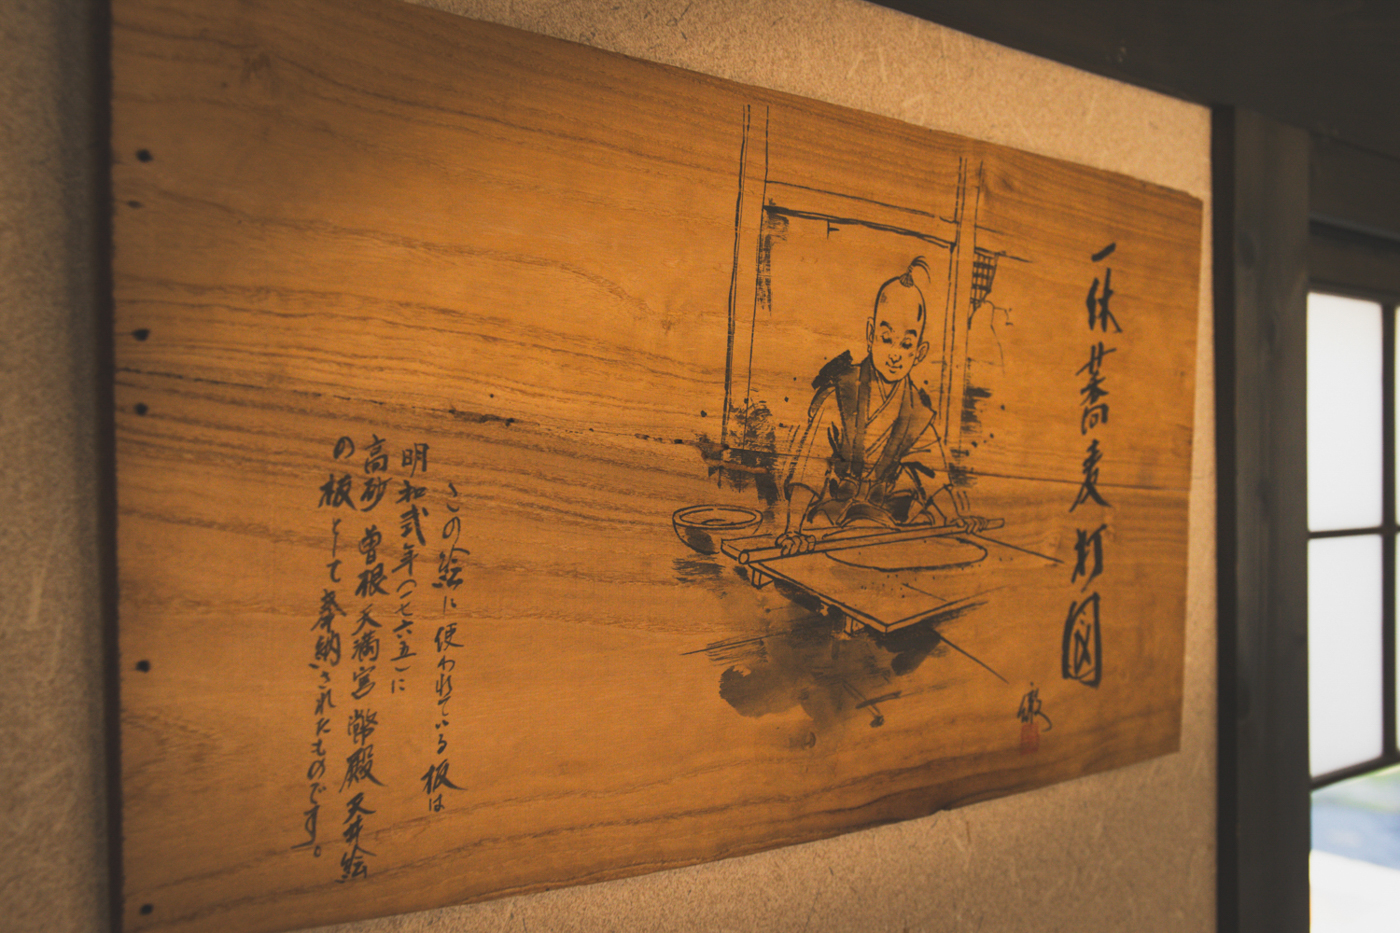 一休蕎麦打図
この絵に使われている板は
明和弐年（一七六五）に
高砂 曽根天満宮 幣殿 天井絵
の板として奉納されたものです。